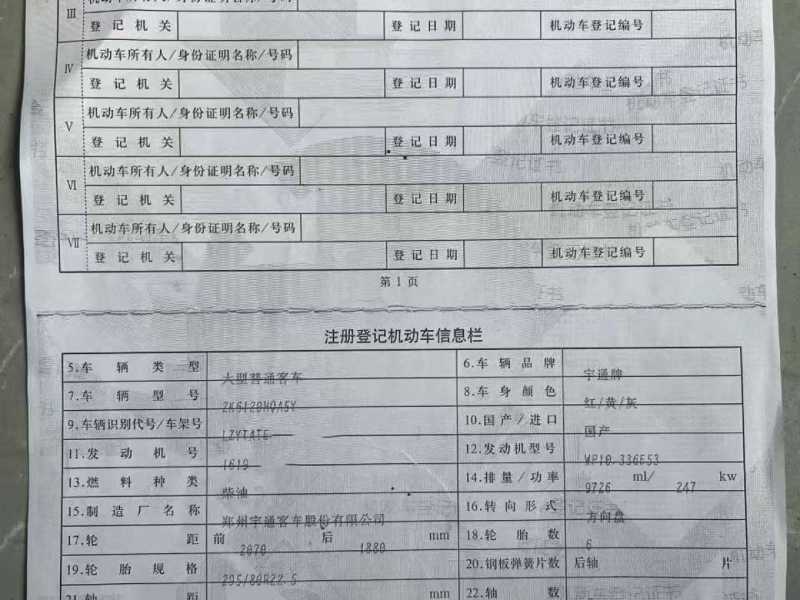 Ⅲ
登记机关 登记日期 机动车登记编号
Ⅳ 机动车所有人/身份证明名称/号码
登记机关 登记日期 机动车登记编号
Ⅴ 机动车所有人/身份证明名称/号码
登记机关 登记日期 机动车登记编号
Ⅵ 机动车所有人/身份证明名称/号码
登记机关 登记日期 机动车登记编号
Ⅶ 机动车所有人/身份证明名称/号码
登记机关 登记日期 机动车登记编号
第 1 页
注册登记机动车信息栏
5.车辆类型 大型普通客车 6.车辆品牌 宇通牌
7.车辆型号 ZK6128HQA5Y 8.车身颜色 红/黄/灰
9.车辆识别代号/车架号 LZYTATE 10.国产/进口 国产
11.发动机号 1619 12.发动机型号 WP10.336E53
13.燃料种类 柴油 14.排量/功率 9726 ml/ 247 kw
15.制造厂名称 郑州宇通客车股份有限公司 16.转向形式 方向盘
17.轮距 前 2070 后 1880 mm 18.轮胎数 6
19.轮胎规格 295/80R22.5 20.钢板弹簧片数 后轴 片
21.轴距 mm 22.轴数